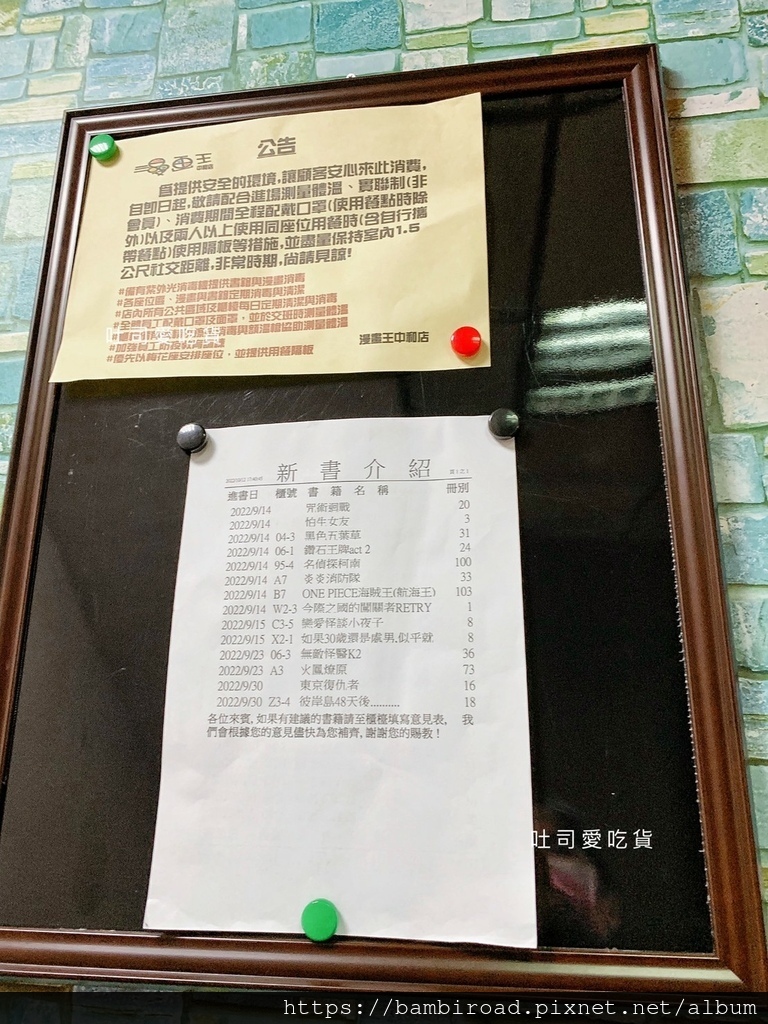 漫畫王 公告
為提供安全的環境,讓顧客安心來此消費,
自即日起,敬請配合進場測量體溫、實聯制(非
會員)、消費期間全程配戴口罩(使用餐點時除
外)以及兩人以上使用同座位用餐時(含自行攜
帶餐點)使用隔板等措施,並盡量保持室內1.5
公尺社交距離,非常時期,尚請見諒!
*備有紫外光消毒櫃提供書籍與漫畫消毒
*各座位區、漫畫與書籍定期消毒與清潔
*店內所有公共區域及櫃檯每日定期清潔與消毒
*全體員工配戴口罩及面罩,並於交班時測量體溫
消毒與額溫槍協助測量體溫
*加強員工
*優先以梅花座安排座位,並提供用餐隔板
漫畫王中和店
新書介紹
進書日 櫃號 書籍名稱 冊別
2022/9/14 咒術迴戰 20
2022/9/14 怕生女友 3
2022/9/14 04-3 黑色五葉草 31
2022/9/14 06-1 鑽石王牌act 2 24
2022/9/14 95-4 名偵探柯南 100
2022/9/14 A7 炎炎消防隊 33
2022/9/14 B7 ONE PIECE海賊王(航海王) 103
2022/9/14 W2-3 今際之國的闖關者RETRY 1
2022/9/15 C3-5 戀愛怪談小夜子 8
2022/9/15 X2-1 如果30歲還是處男,似乎就 8
2022/9/23 06-3 無敵怪醫K2 36
2022/9/23 A3 火鳳燎原 73
2022/9/30 東京復仇者 16
2022/9/30 Z3-4 彼岸島48天後.......... 18
各位來賓,如果有建議的書籍請至櫃檯填寫意見表, 我
們會根據您的意見儘快為您補齊,謝謝您的賜教!
吐司愛吃貨
https://bambiroad.pixnet.net/album